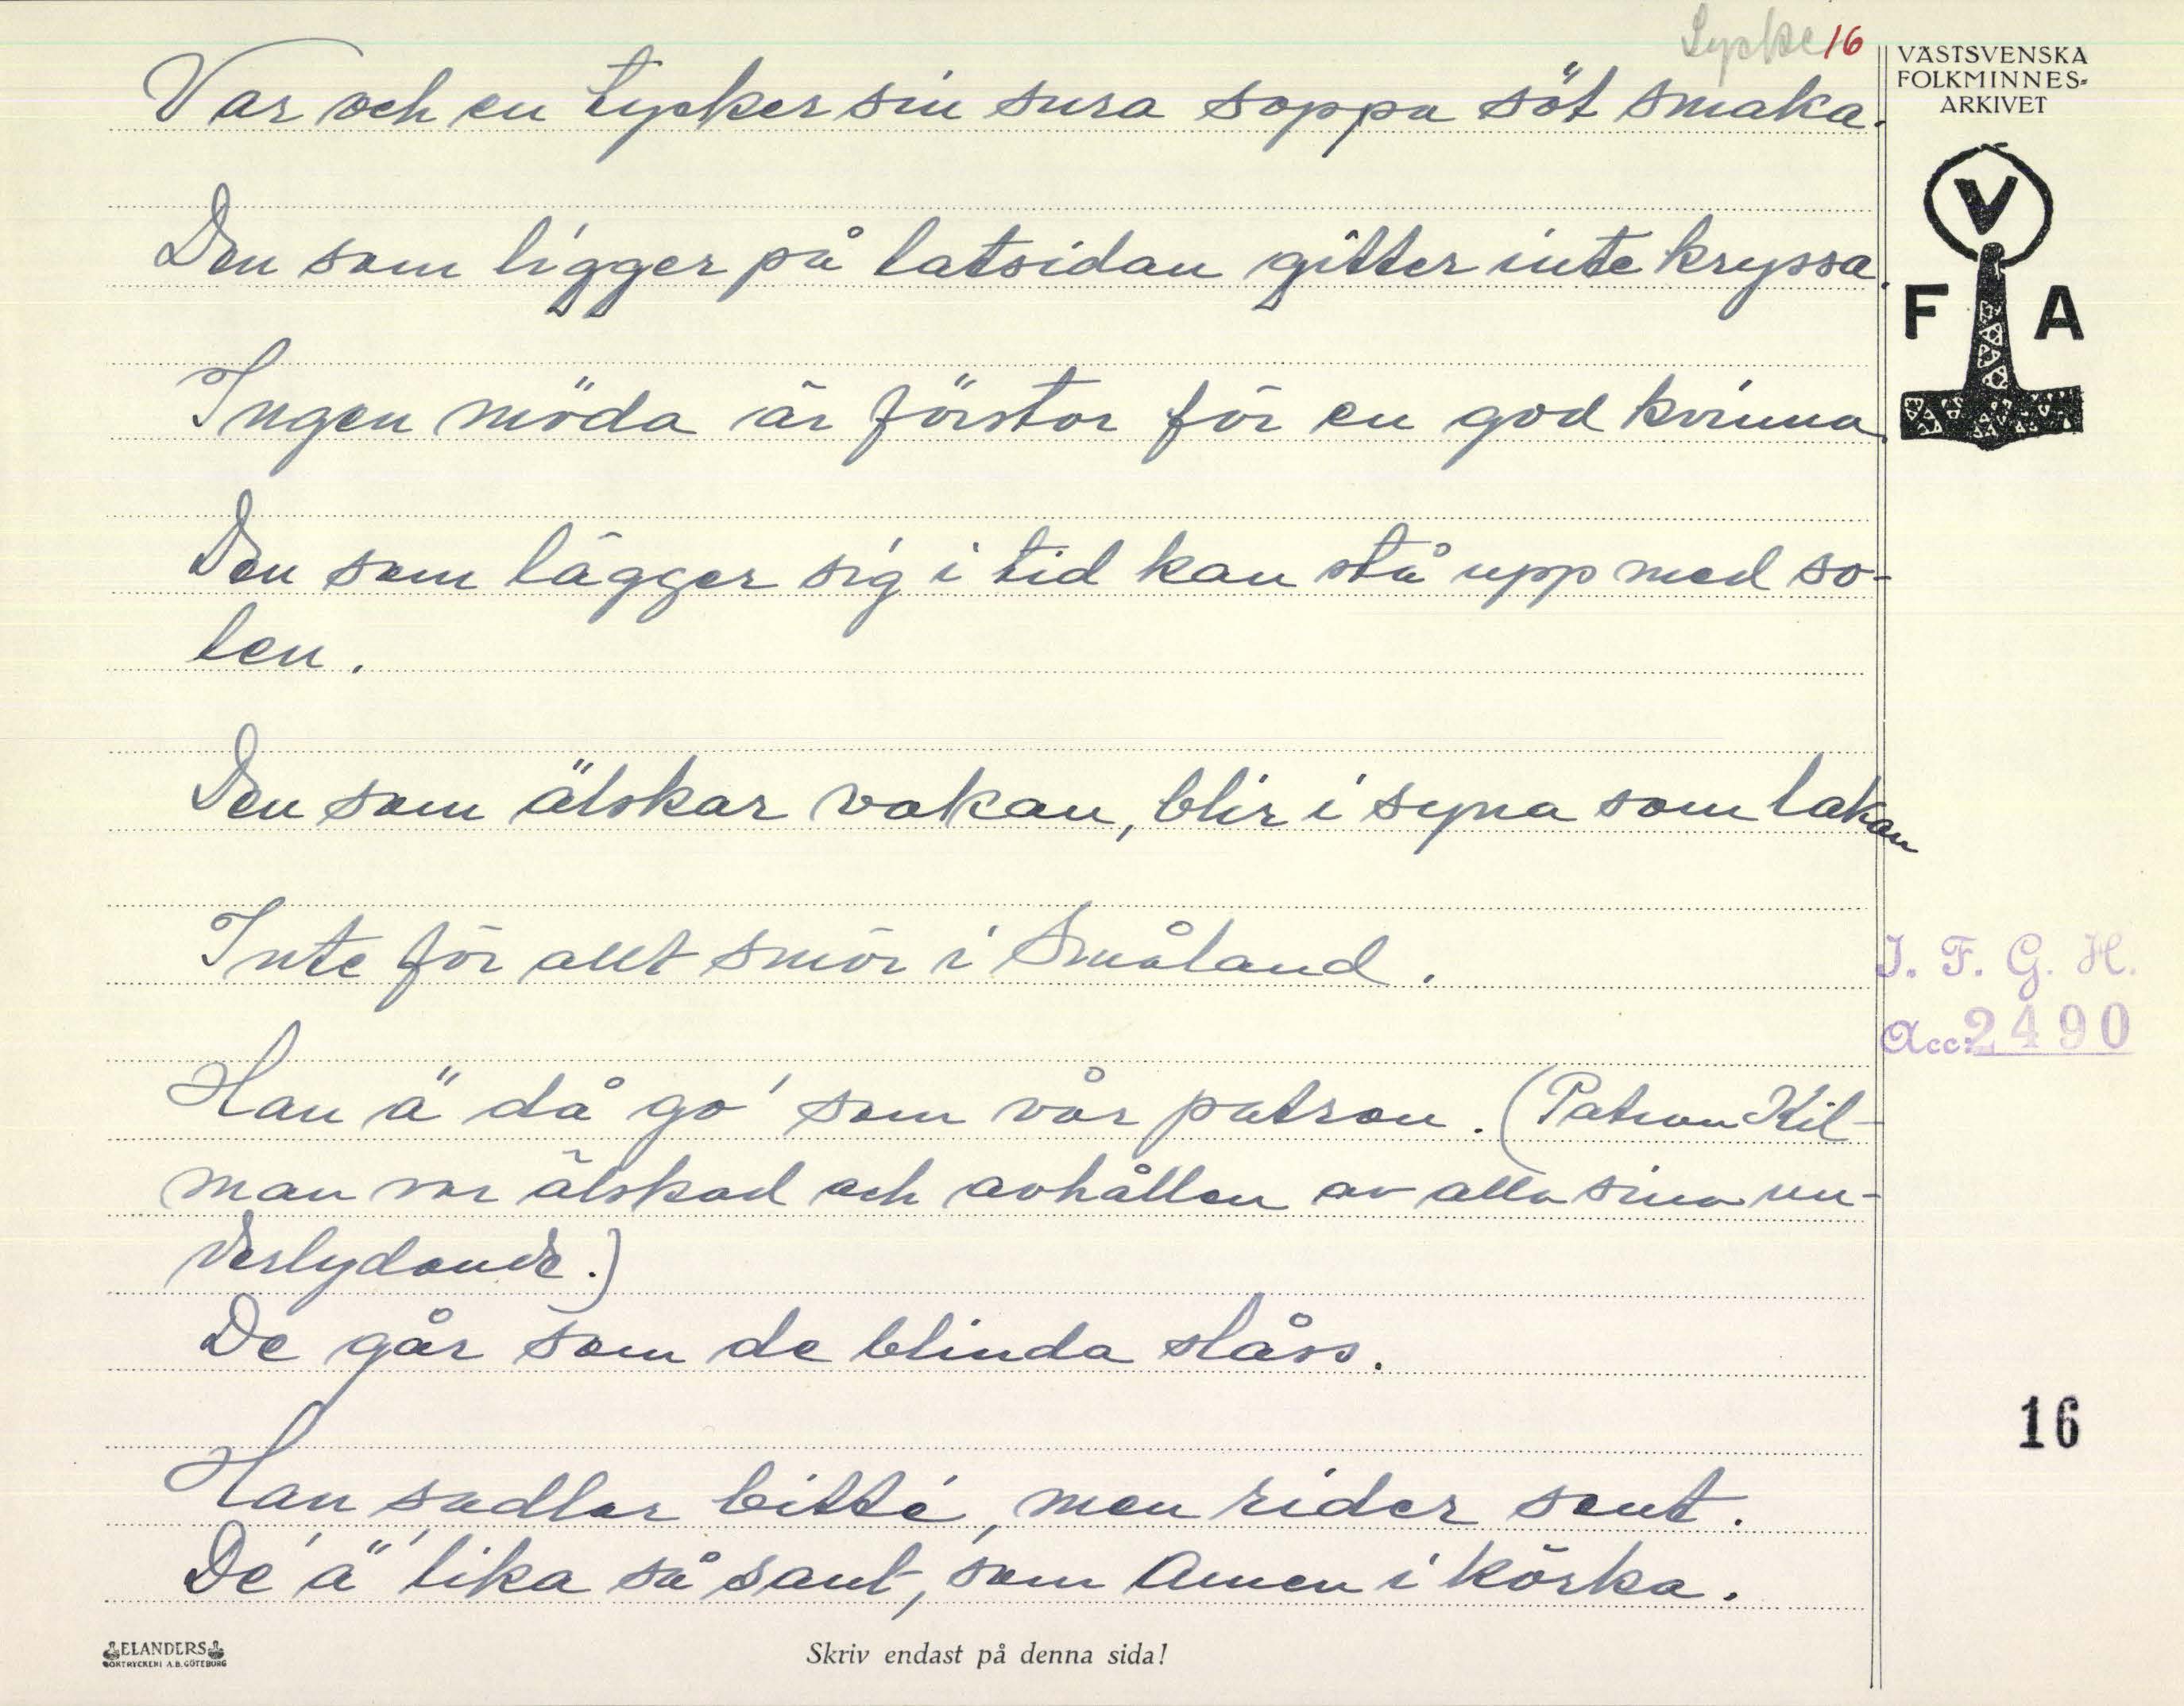 Lycke 16
VÄSTSVENSKA
FOLKMINNES-
ARKIVET
V
F A
Var och en tycker sin sura soppa söt smaka.
Den som ligger på latsidan gitter inte kryssa.
Ingen möda är förstor för en god kvinna.
Den som lägger sig i tid kan stå upp med so-
len.
Den som älskar vakan, blir i syna som lakan
Inte för allt smör i Småland.
I. F. G. H.
Acc: 2490
Han ä' då go' som vår patron. (Patron Kil-
man var älskad och avhållen av alla sina un-
derlydande.)
De går som de blinda slåss.
16
Han sadlar bitté, men rider sent.
De' ä' lika så sant, som Amen i körka.
ELANDERS
BOKTRYCKERI A.B. GÖTEBORG
Skriv endast på denna sida!